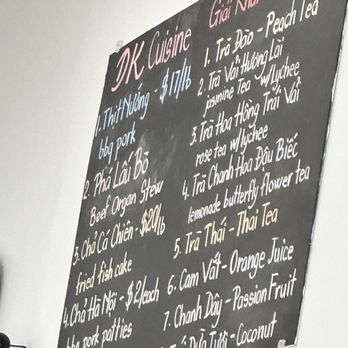 DK Cuisine
1. Thịt Nướng - $17/lb
bbq pork
2. Phá Lấu Bò
Beef Organ Stew
3. Chả Cá Chiên - $20/lb
fried fish cake
4. Chả Hà Nội - $2/each
bbq pork patties
Giải Khát
1. Trà Đào - Peach Tea
2. Trà Vải Hương Lài
jasmine Tea w/lychee
3. Trà Hoa Hồng Trái Vải
rose tea w/lychee
4. Trà Chanh Hoa Đậu Biếc
lemonade butterfly flower tea
5. Trà Thái - Thai Tea
6. Cam Vắt - Orange Juice
7. Chanh Dây - Passion Fruit
Dừa Tươi - Coconut